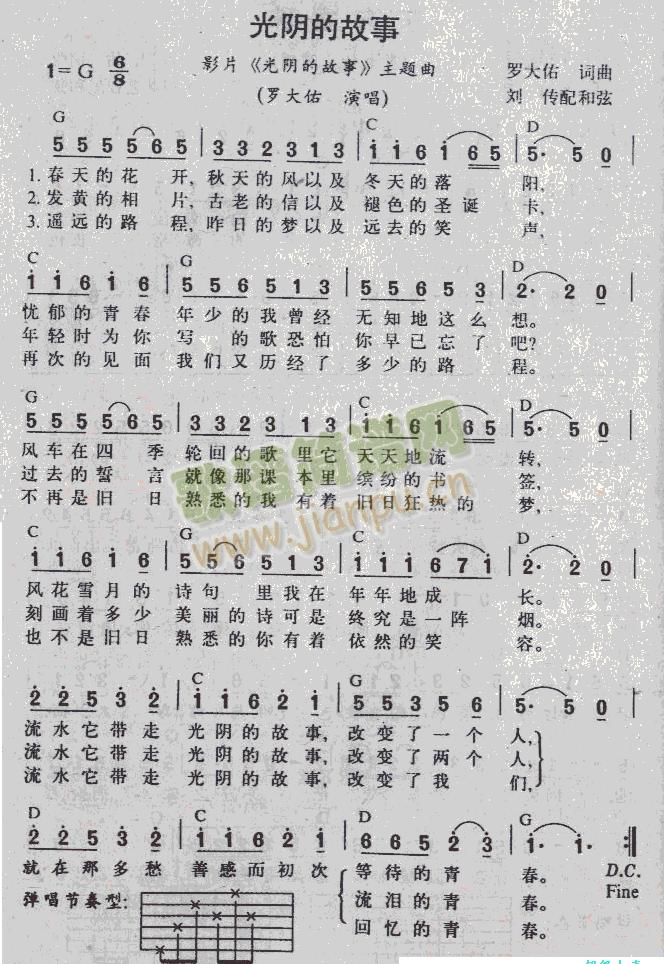 光阴的故事
1=G 6/8
影片《光阴的故事》主题曲
(罗大佑 演唱)
罗大佑 词曲
刘 传配和弦
G C D
5 5 5 5 6 5 | 3 3 2 3 1 3 | i i 6 i 6 5 | 5· 5 0
1.春天的花 开,秋天的风以及 冬天的落 阳,
2.发黄的相 片,古老的信以及 褪色的圣诞 卡,
3.遥远的路 程,昨日的梦以及 远去的笑 声,
C G D
i i 6 i 6 | 5 5 6 5 1 3 | 5 5 6 5 3 | 2· 2 0
忧郁的青春 年少的我曾经 无知地这么 想。
年轻时为你 写 的歌恐怕 你早已忘了 吧?
再次的见面 我们又历经了 多少的路 程。
G C D
5 5 5 5 6 5 | 3 3 2 3 1 3 | i i 6 i 6 5 | 5· 5 0
风车在四 季 轮回的歌 里它 天天地流 转,
过去的誓 言 就像那课 本里 缤纷的书 签,
不再是旧 日 熟悉的我 有着 旧日狂热的 梦,
歌谱简谱网
www.jianpu.cn
C G C D
i i 6 i 6 | 5 5 6 5 1 3 | i i i 6 7 i | 2· 2 0
风花雪月的 诗句 里我在 年年地成 长。
刻画着多少 美丽的诗可是 终究是一阵 烟。
也不是旧日 熟悉的你有着 依然的笑 容。
D C G
2 2 5 3 2 | i i 6 2 i | 5 5 3 5 6 | 5· 5 0
流水它带走 光阴的故事,改变了一个 人,
流水它带走 光阴的故事,改变了两个 人,
流水它带走 光阴的故事,改变了我 们,
D C D G
2 2 5 3 2 | i i 6 2 i | 6 6 5 2 3 | i· i· :‖
就在那多愁 善感而初次 等待的青 春。 D.C.
弹唱节奏型: 流泪的青 春。 Fine
回忆的青 春。